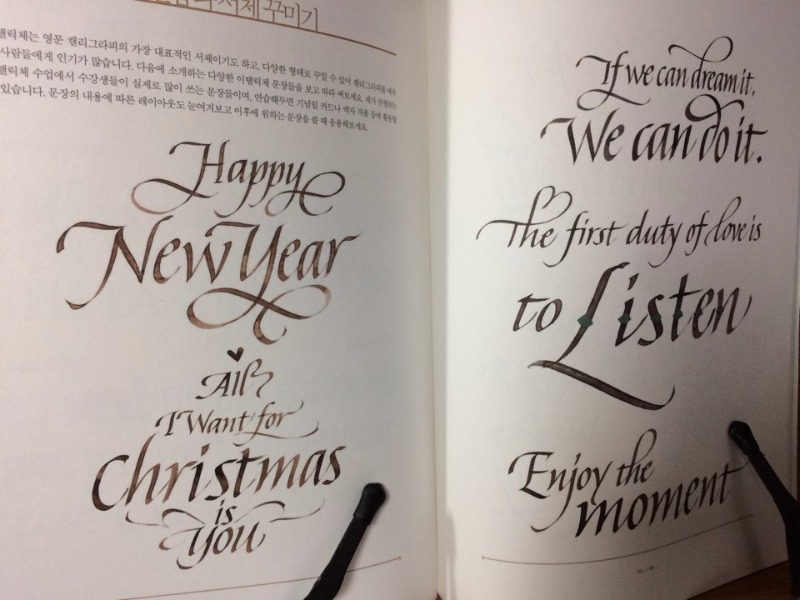 서체 꾸미기
이탤릭체는 영문 캘리그라피의 가장 대표적인 서체이기도 하고, 다양한 형태로 꾸밀 수 있어 캘리그라피를 배우
사람들에게 인기가 많습니다. 다음에 소개하는 다양한 이탤릭체 문장들을 보고 따라 써보세요. 제가 진행하는
이탤릭체 수업에서 수강생들이 실제로 많이 쓰는 문장들이며, 연습해두면 기념일 카드나 액자 작품 등에 활용할
있습니다. 문장의 내용에 따른 레이아웃도 눈여겨보고 이후에 원하는 문장을 쓸 때 응용해보세요.
Happy
New Year
All
I Want for
Christmas
is
You
If we can dream it,
We can do it.
The first duty of love is
to Listen
Enjoy the
moment